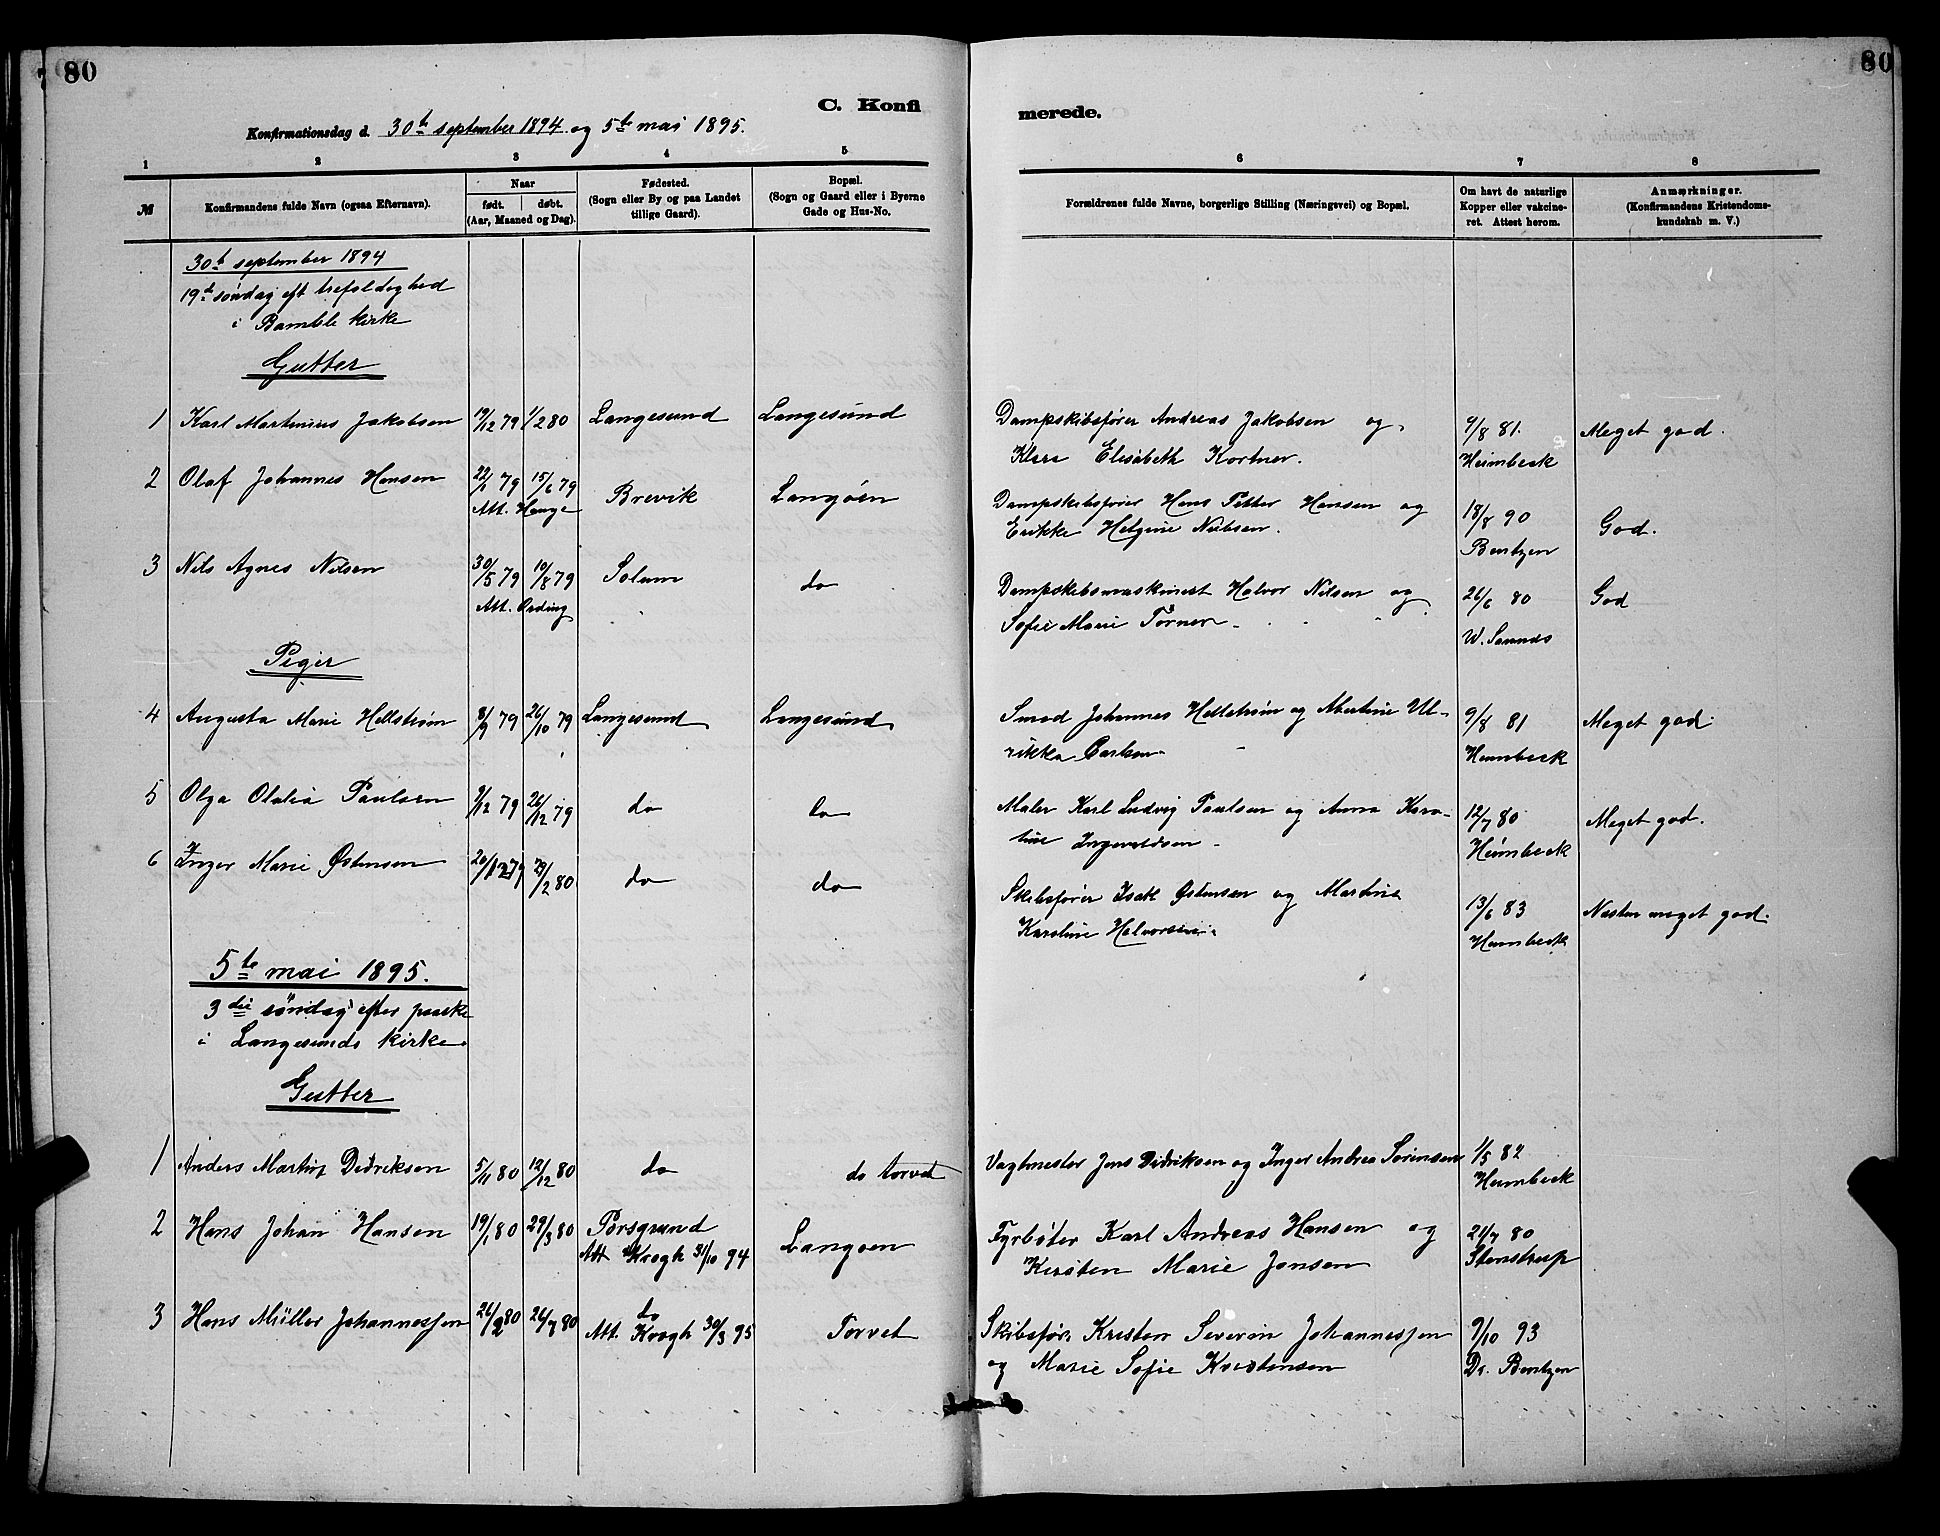 80
80
C. Konfi
merede.
Konfirmationsdag d. 30te september 1894 og 5te mai 1895.
1 2 3 4 5
6 7 8
№
Konfirmandens fulde Navn (ogsaa Efternavn).
Naar
født. døbt.
(Aar, Maaned og Dag).
Fødested.
(Sogn eller By og paa Landet
tillige Gaard).
Bopæl.
(Sogn og Gaard eller i Byerne
Gade og Hus-No.
Forældrenes fulde Navne, borgerlige Stilling (Næringsvei) og Bopæl.
Om havt de naturlige
Kopper eller vakcine-
ret. Attest herom.
Anmærkninger.
(Konfirmandens Kristendoms-
kundskab m. V.)
30te september 1894
19te søndag eft trefoldighed
i Bamble kirke
Gutter
1 Karl Martinius Jakobsen 19/12 79 1/2 80 Langesund Langesund
Dampskibsfører Andreas Jakobsen og
Klara Elisabeth Kortner.
9/8 81.
Heimbeck
Meget god.
2 Olaf Johannes Hansen 22/1 79 15/6 79
Att. Hauge
Brevik Langøen
Dampskibsfører Hans Petter Hansen og
Erikke Helgine Nilsen.
18/8 90
Bentzen
God.
3 Nils Agnes Nilsen 30/5 79 10/8 79
Att. Ording
Solum do
Dampskibsmaskinist Halvor Nilsen og
Sofie Marie Tørner
26/6 80
W. Saunds
God
Piger
4 Augusta Marie Hellstrøm 8/9 79 26/10 79 Langesund Langesund
Smed Johannes Hellstrøm og Albertine Ul-
rikka Carlsen
9/8 81
Heimbeck
Meget god.
5 Olga Olalia Paulsen 9/12 79 26/12 79 do do
Maler Karl Ludvig Paulsen og Anna Karo-
line Ingevaldsen
12/7 80
Heimbeck
Meget god.
6 Inger Marie Østensen 20/12 79 29/2 80 do do
Skibsfører Isak Østensen og Martine
Karoline Halvorsen
13/6 83
Heimbeck
Næsten meget god.
5te mai 1895.
3die søndag efter paaske
i Langesunds kirke.
Gutter
1 Anders Martin Didriksen 5/11 80 12/12 80 do do torvet
Vagtmester Jens Didriksen og Inger Andrea Sørensen
1/5 82
Heimbeck
2 Hans Johan Hansen 19/1 80 29/3 80 Porsgrund
Att Krogh 31/10 94
Langøen
Fyrbøter Karl Andreas Hansen og
Kirsten Marie Jonsen
21/7 80
Stenstrup
3 Hans Müller Johannesjen 26/2 80 26/7 80 do
Att. Krogh 30/3 95
Torvet
Skibsfør. Kristen Severin Johannesjen
og Marie Sofie Kristensen
9/10 93
Dr. Bentzen